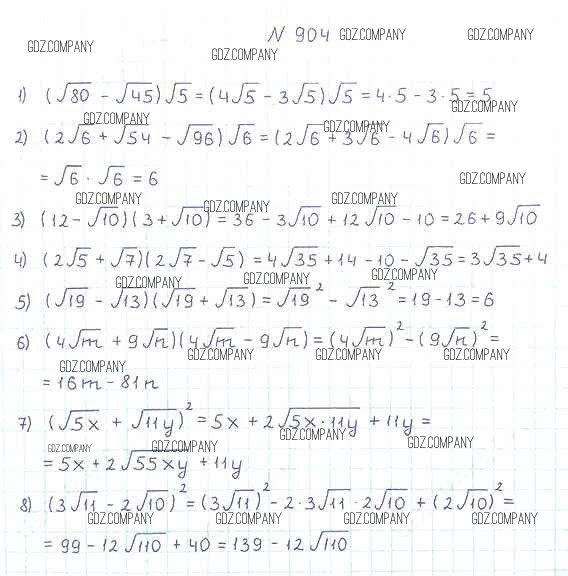 N 904 GDZ.COMPANY GDZ.COMPANY
GDZ.COMPANY GDZ.COMPANY
1) (√80 - √45)√5 = (4√5 - 3√5)√5 = 4·5 - 3·5 = 5
GDZ.COMPANY GDZ.COMPANY
2) (2√6 + √54 - √96)√6 = (2√6 + 3√6 - 4√6)√6 =
GDZ.COMPANY
= √6 · √6 = 6 GDZ.COMPANY
GDZ.COMPANY GDZ.COMPANY
3) (12 - √10)(3 + √10) = 36 - 3√10 + 12√10 - 10 = 26 + 9√10
4) (2√5 + √7)(2√7 - √5) = 4√35 + 14 - 10 - √35 = 3√35 + 4
GDZ.COMPANY GDZ.COMPANY GDZ.COMPANY
5) (√19 - √13)(√19 + √13) = √19² - √13² = 19 - 13 = 6
6) (4√m + 9√n)(4√m - 9√n) = (4√m)² - (9√n)² =
GDZ.COMPANY GDZ.COMPANY GDZ.COMPANY GDZ.COMPANY
= 16m - 81n
7) (√5x + √11y)² = 5x + 2√5x·11y + 11y =
GDZ.COMPANY GDZ.COMPANY GDZ.COMPANY GDZ.COMPANY
= 5x + 2√55xy + 11y
8) (3√11 - 2√10)² = (3√11)² - 2·3√11·2√10 + (2√10)² =
GDZ.COMPANY GDZ.COMPANY GDZ.COMPANY GDZ.COMPANY
= 99 - 12√110 + 40 = 139 - 12√110